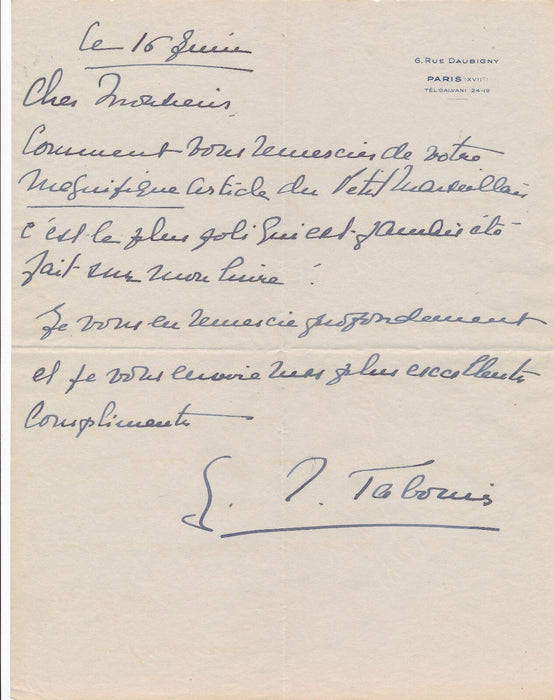 le 16 Juin
6, RUE DAUBIGNY
PARIS (XVIIᵉ)
TÉL. GALVANI 24-19
Cher Monsieur,
Comment vous remercier de votre
magnifique article du Petit Marseillais
c'est le plus joli qui est jamais été
fait sur mon livre !
Je vous en remercie profondément
et je vous envoie mes plus excellents
compliments
G. Tabouis